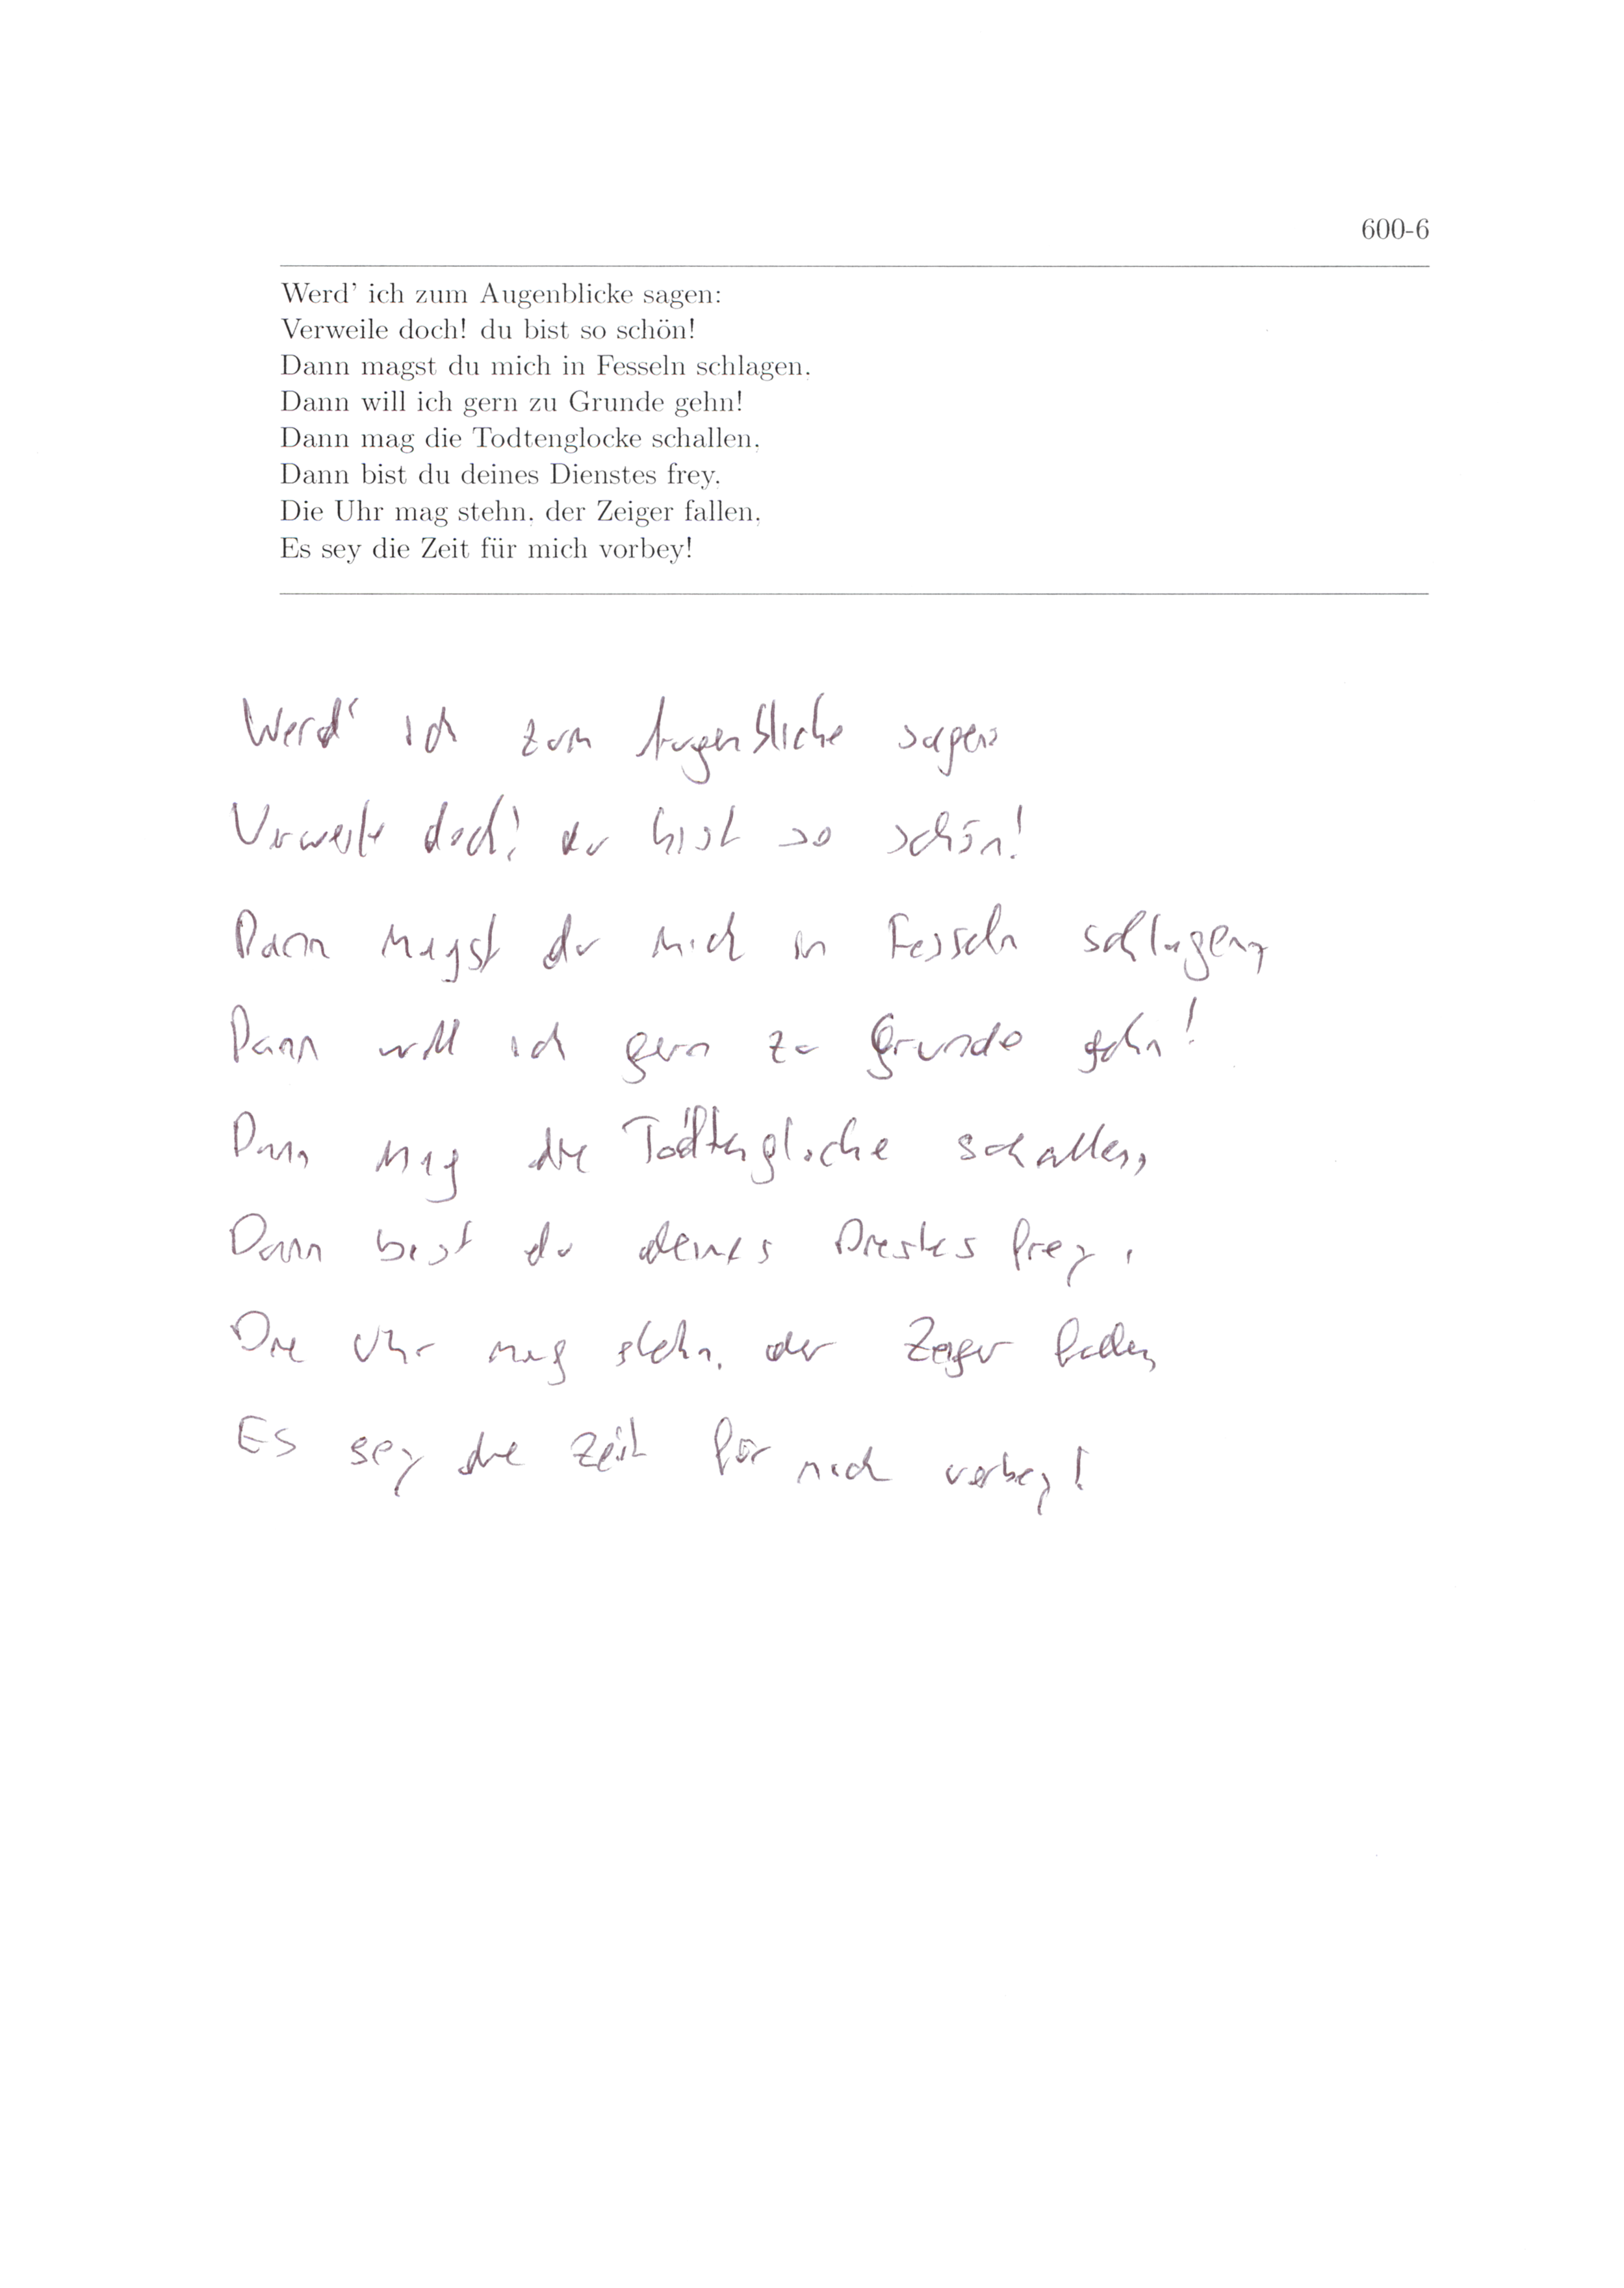 600-6
Werd' ich zum Augenblicke sagen:
Verweile doch! du bist so schön!
Dann magst du mich in Fesseln schlagen,
Dann will ich gern zu Grunde gehn!
Dann mag die Todtenglocke schallen,
Dann bist du deines Dienstes frey.
Die Uhr mag stehn, der Zeiger fallen,
Es sey die Zeit für mich vorbey!
Werd' ich zum Augenblicke sagen:
Verweile doch! du bist so schön!
Dann magst du mich in Fesseln schlagen,
Dann will ich gern zu Grunde gehn!
Dann mag die Todtenglocke schallen,
Dann bist du deines Diestes frey.
Die Uhr mag stehn, der Zeiger fallen,
Es sey die Zeit für mich vorbey!